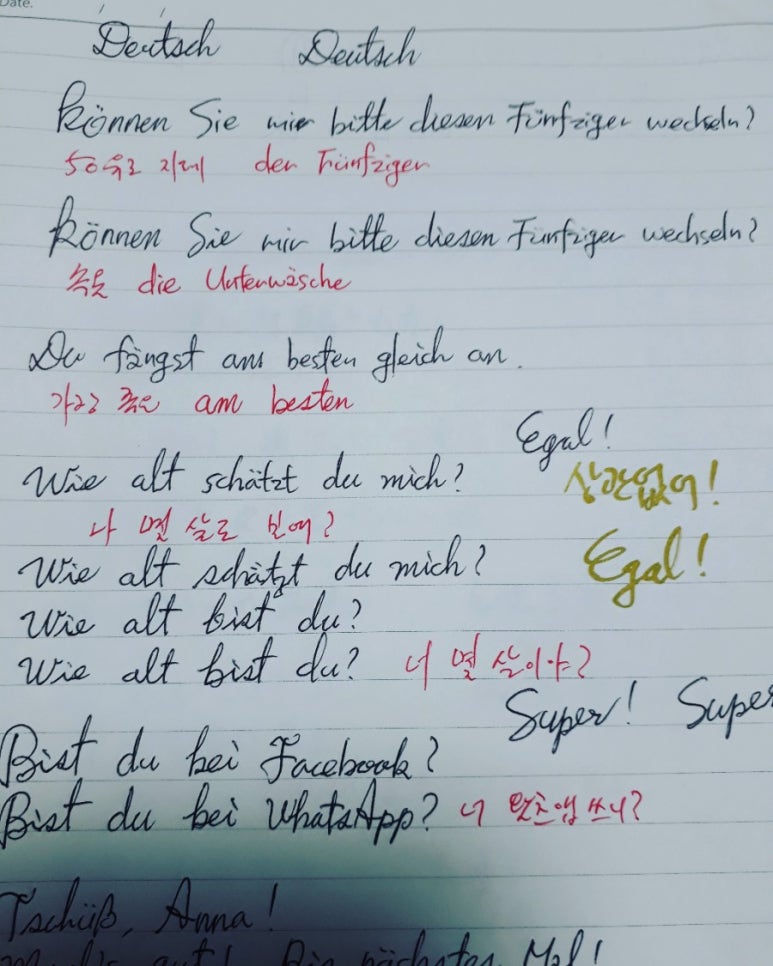 Date.
Deutsch Deutsch
Können Sie mir bitte diesen Fünfziger wechseln?
50유로 지폐 der Fünfziger
Können Sie mir bitte diesen Fünfziger wechseln?
속옷 die Unterwäsche
Du fängst am besten gleich an.
가장 좋은 am besten
Egal!
Wie alt schätzt du mich?
상관없어!
나 몇 살로 보여?
Egal!
Wie alt schätzt du mich?
Wie alt bist du?
Wie alt bist du? 너 몇 살이야?
Super! Super
Bist du bei Facebook?
Bist du bei WhatsApp? 너 왓츠앱 쓰니?
Tschüß, Anna!
gut! Bis nächsten Mal!